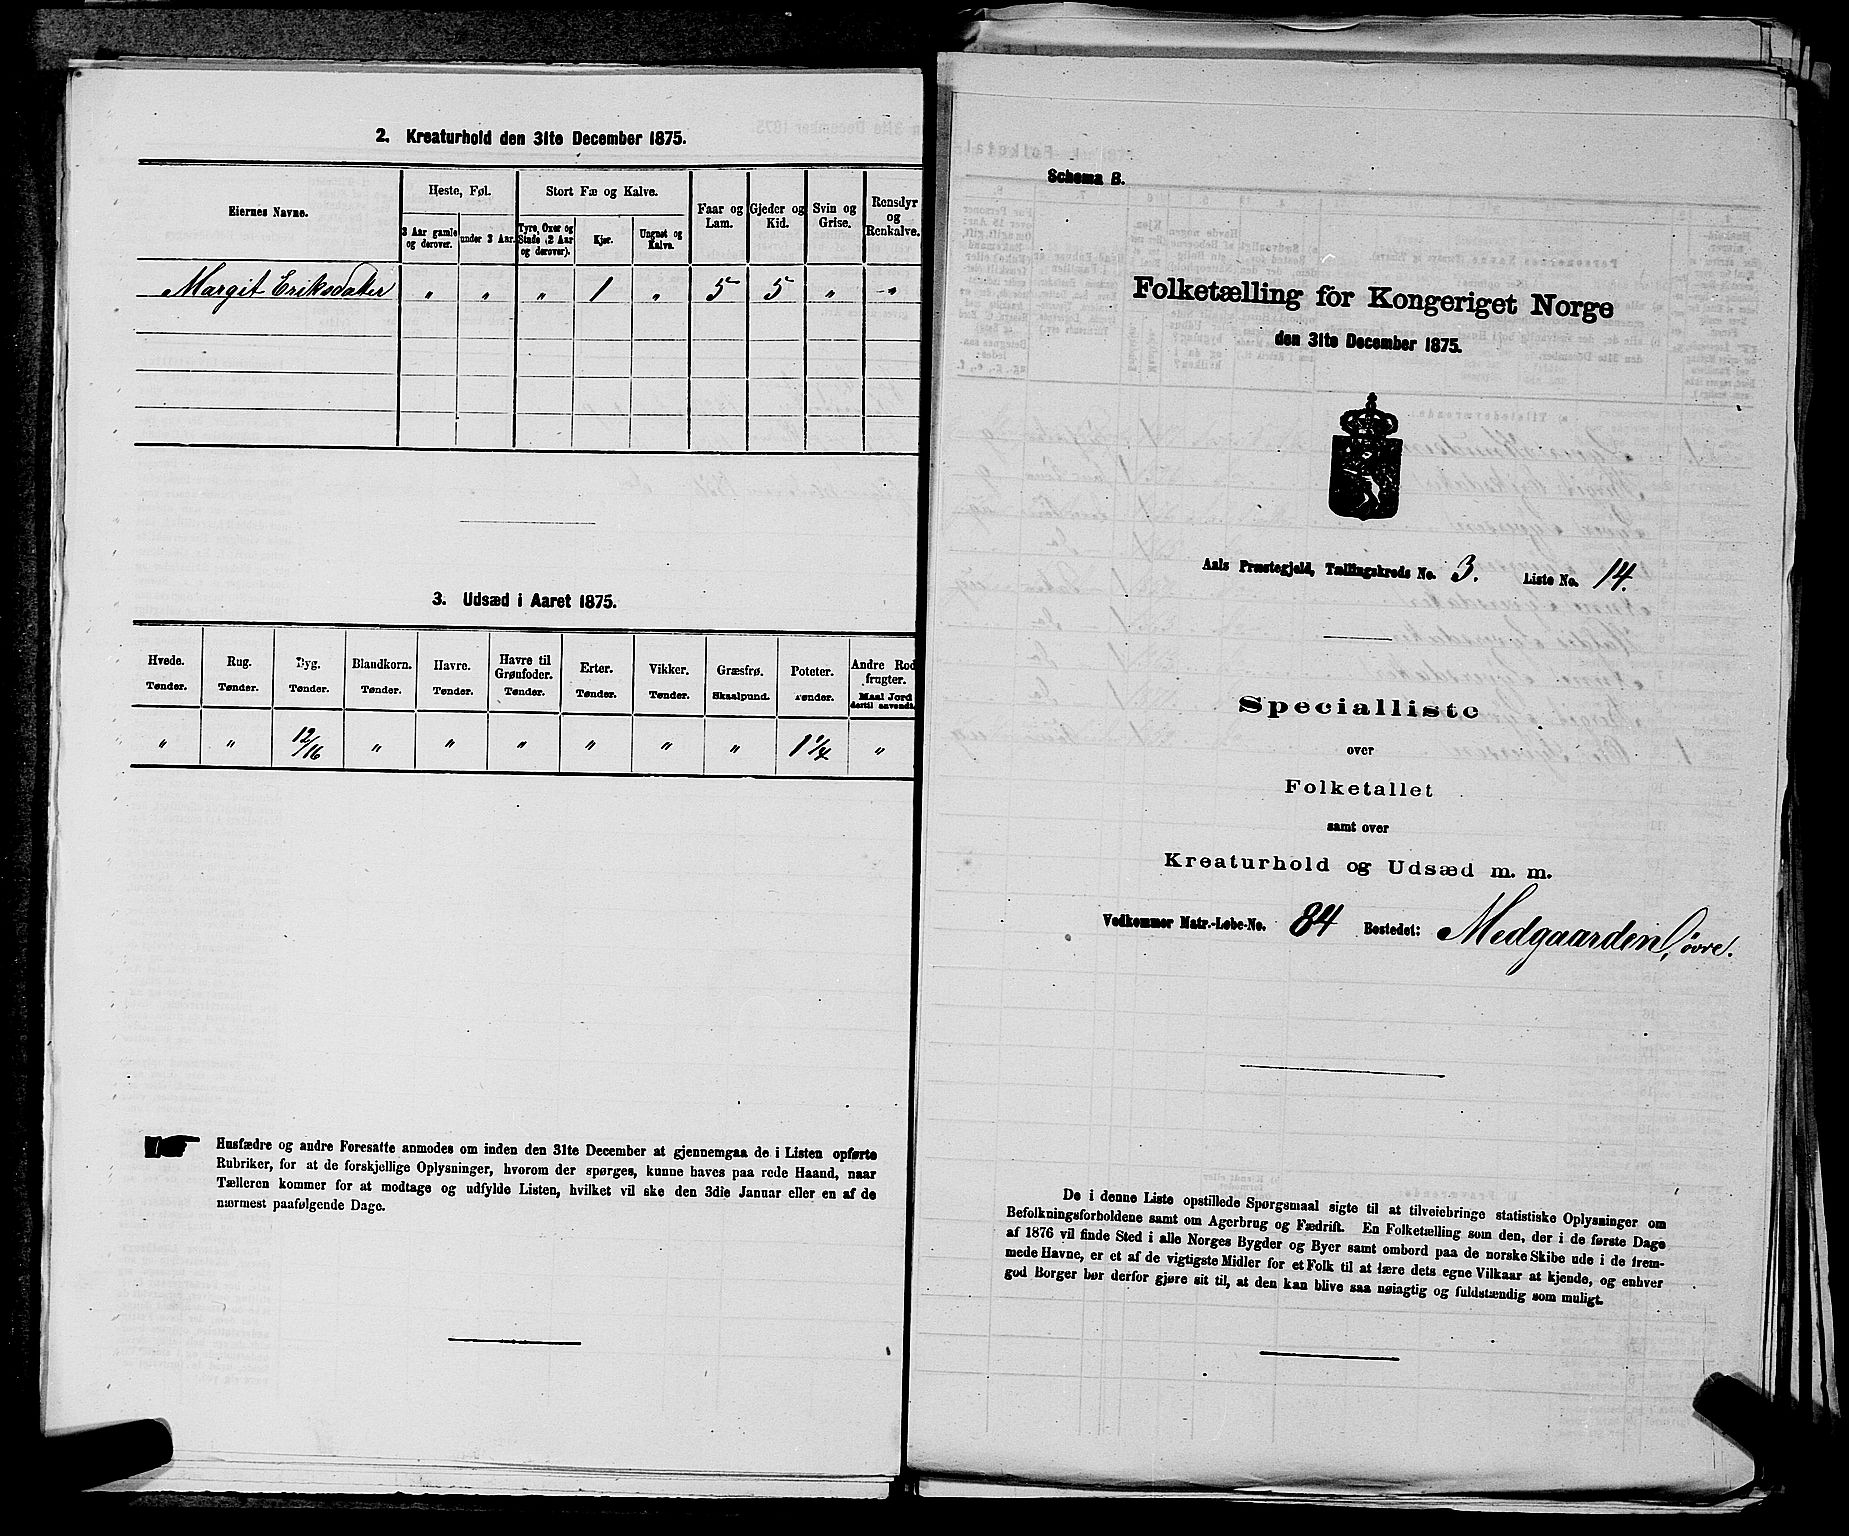 2. Kreaturhold den 31te December 1875.
Eiernes Navne.
Heste, Føl.
3 Aar gamle og derover.
under 3 Aar.
Stort Fæ og Kalve.
Tyre, Oxer og Stude (2 Aar og derover).
Kjør.
Ungnøt og Kalve.
Faar og Lam.
Gjeder og Kid.
Svin og Grise.
Rensdyr og Renkalve.
Margit Eriksdatter " " " 1 " 5 5 " "
3. Udsæd i Aaret 1875.
Hvede. Rug. Byg. Blandkorn. Havre. Havre til Grønfoder. Erter. Vikker. Græsfrø. Poteter. Andre Rodfrugter.
Tønder. Tønder. Tønder. Tønder. Tønder. Tønder. Tønder. Tønder. Skaalpund. Tønder. Maal Jord dertil anvendt.
" " 12/16 " " " " " " 1 1/4 "
Husfædre og andre Foresatte anmodes om inden den 31te December at gjennemgaa de i Listen opførte
Rubriker, for at de forskjellige Oplysninger, hvorom der spørges, kunne haves paa rede Haand, naar
Tælleren kommer for at modtage og udfylde Listen, hvilket vil ske den 3die Januar eller en af de
nærmest paafølgende Dage.
Schema B.
Folketælling for Kongeriget Norge
den 31te December 1875.
Aals Præstegjeld, Tællingskreds No. 3. Liste No. 14.
Specialliste
over
Folketallet
samt over
Kreaturhold og Udsæd m. m.
Vedkommer Matr.-Løbe-No. 84 Bostedet: Medgaarden, övre.
De i denne Liste opstillede Spørgsmaal sigte til at tilveiebringe statistiske Oplysninger om
Befolkningsforholdene samt om Agerbrug og Fædrift. En Folketælling som den, der i de første Dage
af 1876 vil finde Sted i alle Norges Bygder og Byer samt ombord paa de norske Skibe ude i de frem-
mede Havne, er et af de vigtigste Midler for et Folk til at lære dets egne Vilkaar at kjende, og enhver
god Borger bør derfor gjøre sit til, at den kan blive saa nøiagtig og fuldstændig som muligt.